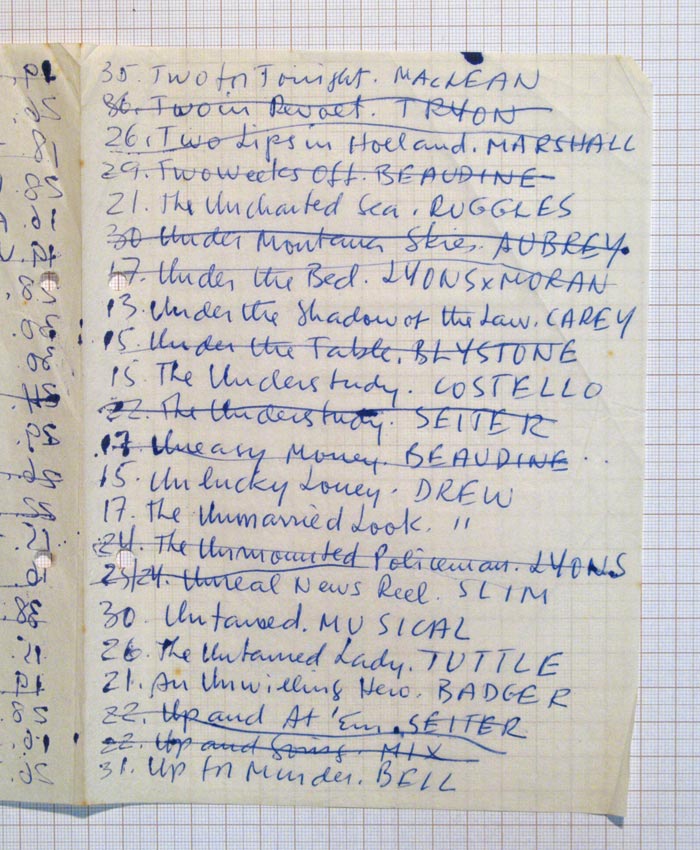 35. Two for Tonight. MACLEAN
36. Two in Revolt. TRYON
26. Two Lips in Holland. MARSHALL
29. Two Weeks Off. BEAUDINE
21. The Uncharted Sea. RUGGLES
30 Under Montana Skies. AUBREY.
17. Under the Bed. LYONS x MORAN
13. Under the Shadow of the Law. CAREY
15. Under the Table. BLYSTONE
15. The Understudy. COSTELLO
22. The Understudy. SEITER
17. Uneasy Money. BEAUDINE
15. Unlucky Louey. DREW
17. The Unmarried Look. "
24. The Unmounted Policeman. LYONS
23/24. Unreal News Reel. SLIM
30. Untamed. MUSICAL
26. The Untamed Lady. TUTTLE
21. An Unwilling Hero. BADGER
22. Up and At 'Em. SEITER
22. Up and Going. MIX
31. Up for Murder. BELL